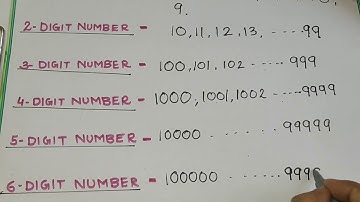 9.
2-DIGIT NUMBER - 10, 11, 12, 13, ......99
3-DIGIT NUMBER - 100, 101, 102 ...... 999
4-DIGIT NUMBER - 1000, 1001, 1002 ......9999
5-DIGIT NUMBER - 10000 ....... 99999
6-DIGIT NUMBER - 100000 .......9999